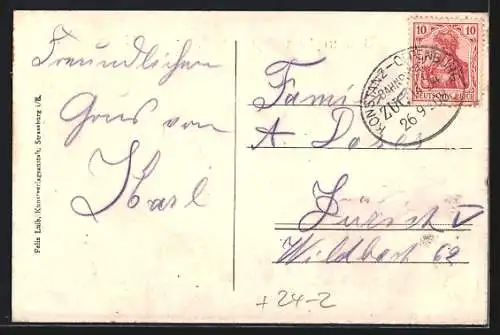 Freundlichen
Gruss von
Karl
Felix Luib, Kunstverlagsanstalt, Strassburg i/E.
10 10
DEUTSCHES REICH
KONSTANZ-OFFENBURG
BAHNPOST
ZUG
26 9
Familie
A
Zürich V
Wildbach 62
+ 24-2